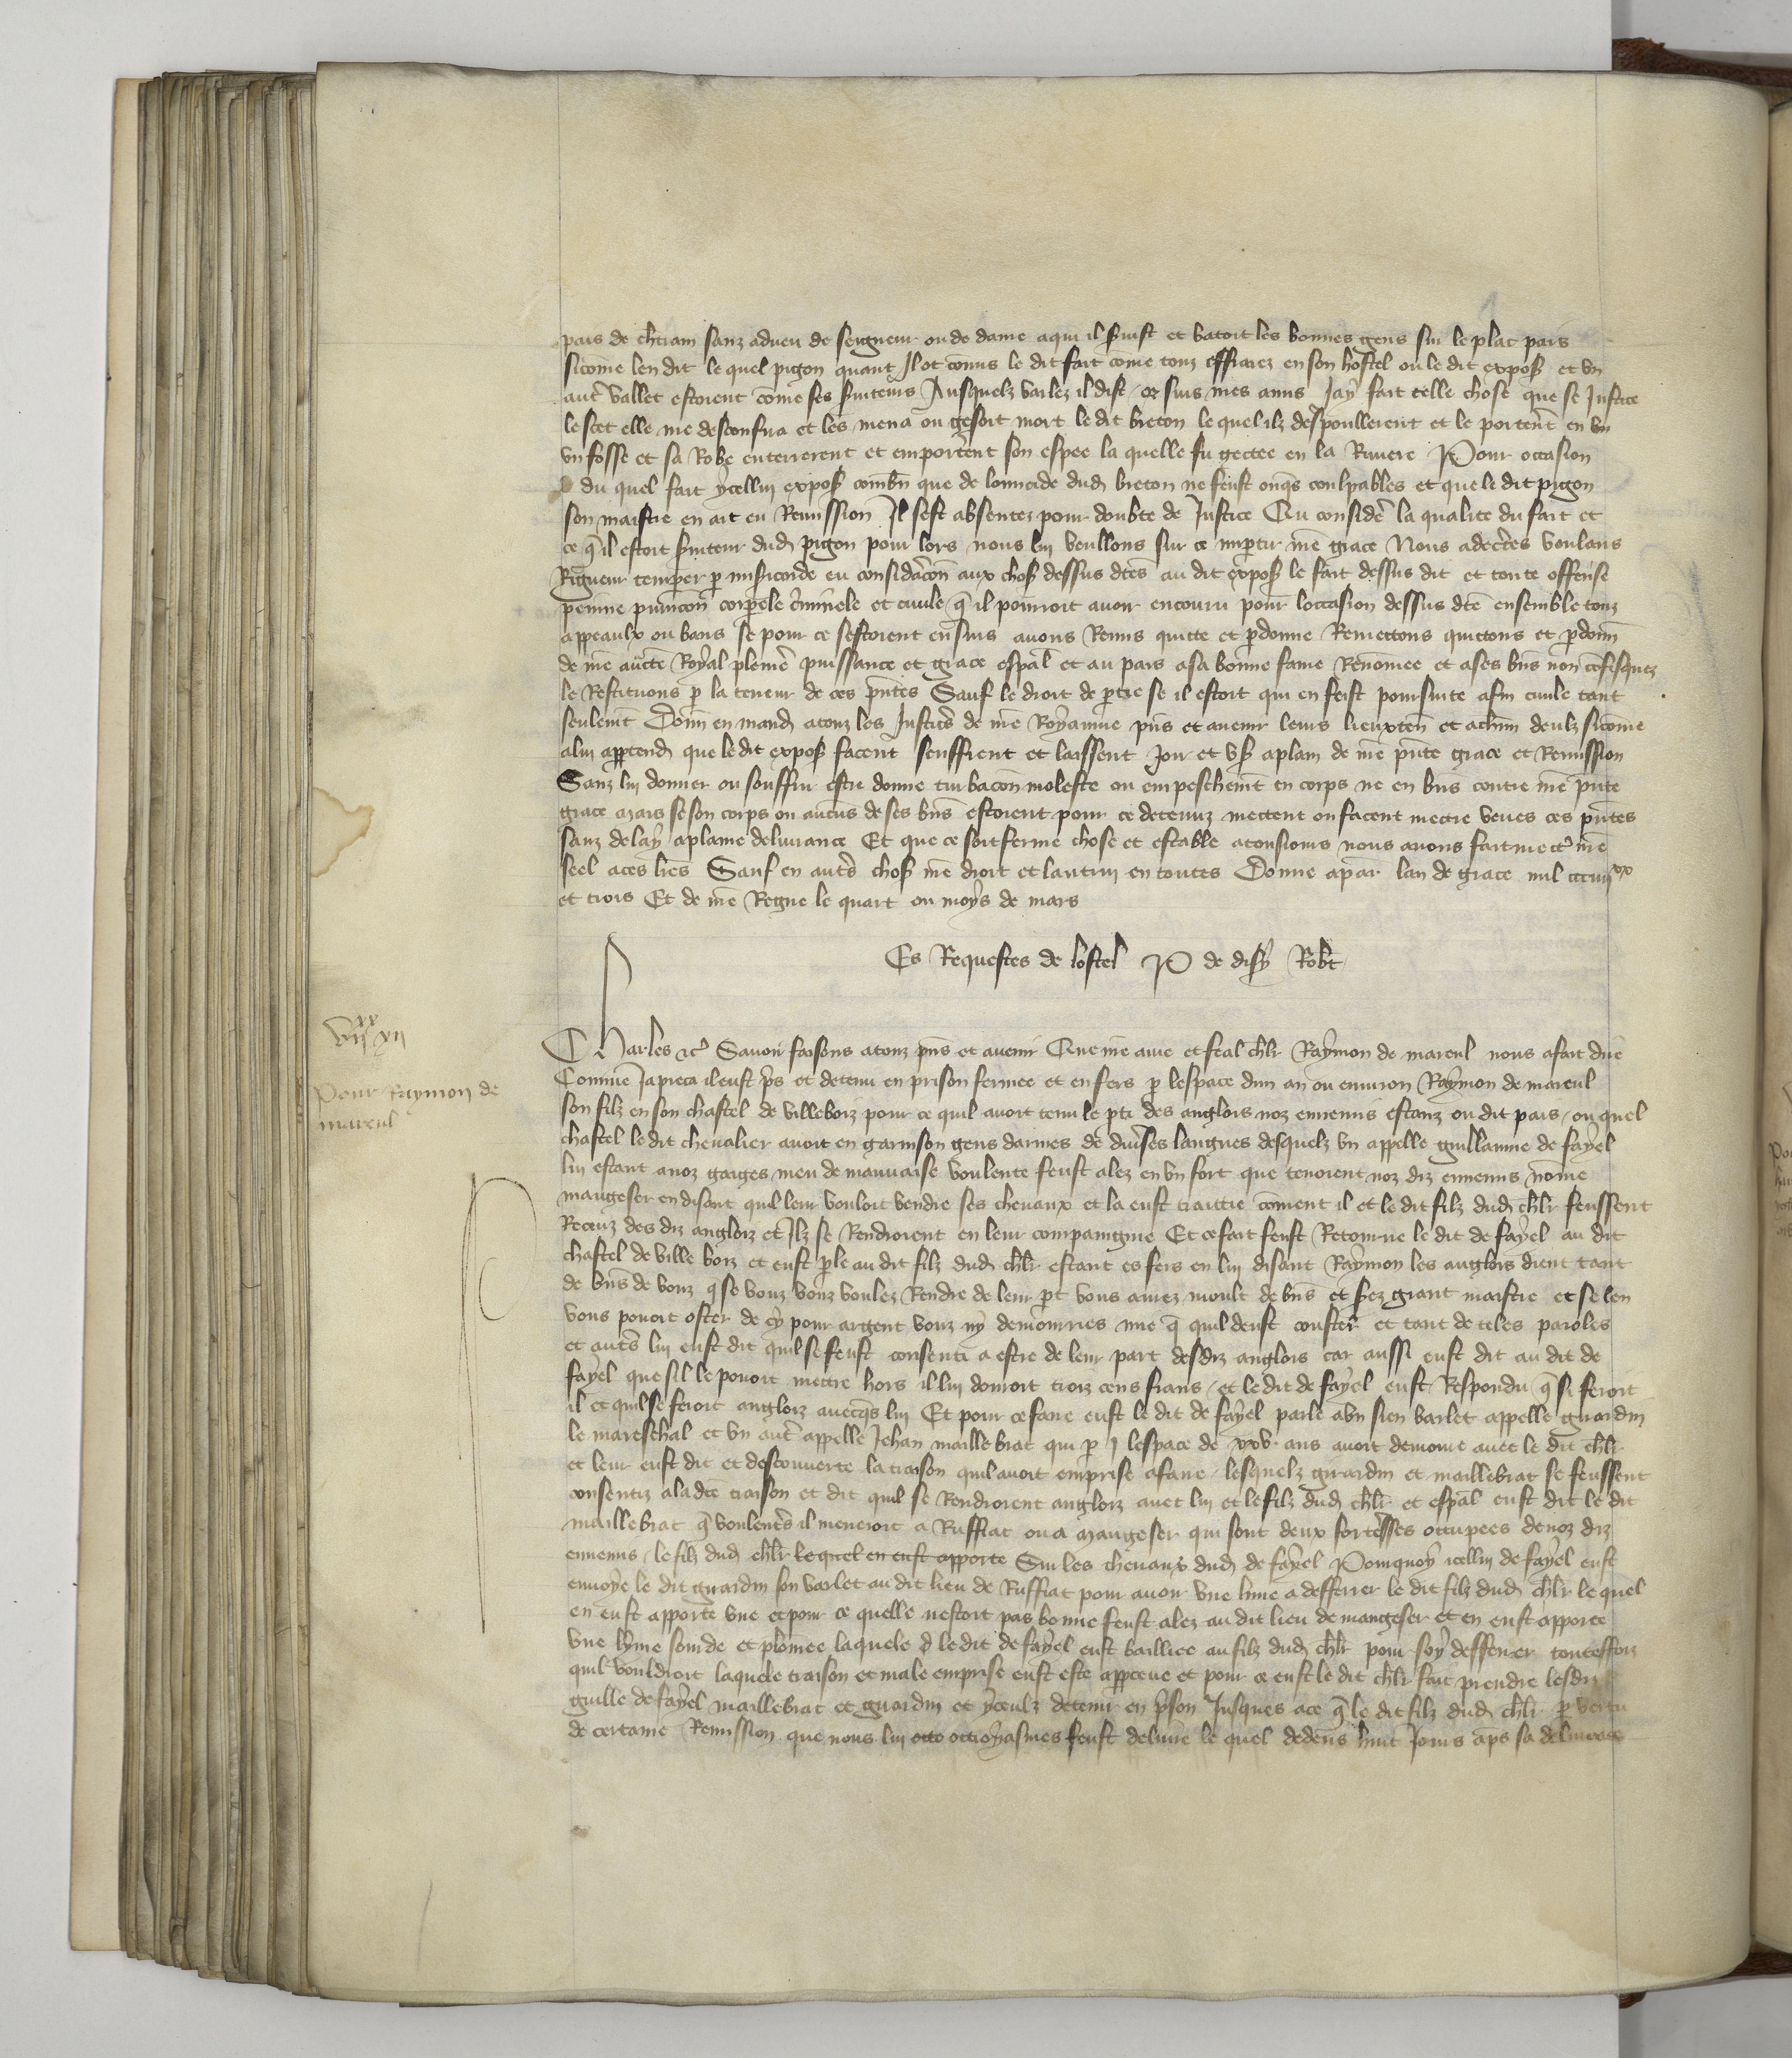 pais de chtiam sanz adveu de seigneur ou de dame aqui il fuist et batoit les bonnes gens sur le plat pais
sicome len dit le quel pigon quant Il ot comis le dit fait come touz effraiez en son hostel ou le dit expos et vn
autre vallet estoient come ses suiteurs Ausquelz varlez il dist or sus mes amis Jay fait telle chose que se Justice
le scet elle me desconfira et les mena ou gesoit mort le dit breton le quel ilz despoullerent et le porterent en vn
vn fosse et sa Robe enterrerent et emporterent son espee la quelle fu gectee en la Riviere Pour occasion
du quel fait ycellui expos combn que de lomicide dud breton ne feust onqs coulpables et que le dit pigon
son maistre en ait eu Remission Il sest absentez pour doubte de Justice Qu considere la qualite du fait et
ce q il estoit suiteur dud pigon pour lors nous lui veullons sur ce impartir nre grace Nous adecertes voulans
Rigueur temperer p misicorde eu consideracon aux chos dessus dtes au dit expos le fait dessus dit et toute offense
peinne punicon corporele criminele et civile q il pourroit avoir encouru pour loccasion dessus dte ensemble touz
appeaulx ou bans se pour ce sestoient ensuis avons Remis quitte et pdonne Remettons quittons et pdonn
de nre aucte Royal pleniere puissance et grace espal et au pais a sa bonne fame Renomee et a ses bns non cofisquez
le Restituons p la teneur de ces pntes Sauf le droit de ptie se il estoit qui en feist poursuite afin civile tant
seulemt Donn en mand a touz les Justiciers de nre Royaume pns et avenir leurs lieuxten et a chun deulz sicome
a lui apptend que le dit expos facent seuffrent et laissent Joir et us a plain de nre pnte grace et Remission
Sanz lui donner ou souffrir estre donne turbacon moleste ou empeschemt en corps ne en bns contre nre pnte
grace mais se son corps ou aucus de ses bns estoient pour ce detenuz mettent ou facent mettre veues ces pntes
sanz delay a plaine delivrance Et que ce soit ferme chose et estable a tousiours nous avons fait mectre nre
seel a ces lres Sauf en autres chos nre droit et lautrui en toutes Donne a par lan de grace mil ccciiii xx
et trois Et de nre Regne le quart ou moys de mars
Es Requestes de lostel P de disy Robt
vii xx xii
Pour Raymon de
mareul
Charles etc Savoir faisons a touz pns et avenir Que nre ame et feal chlr Raymon de mareul nous a fait dire
Comme Ja pieca il eust pris et detenu en prison fermee et en fers p lespace dun an ou environ Raymon de mareul
son filz en son chastel de villeboiz pour ce quil avoit tenu le pti des anglois noz ennemis estanz ou dit pais ou quel
chastel le dit chevalier avoit en garnison gens darmes de diverses langues desquelz vn appelle guillaume de fayel
lui estant a noz gaiges meu de mauvaise voulente feust alez en vn fort que tenoient noz diz ennemis nome
maugeser en disant quil leur vouloit vendre ses chevaux et la eust traictie coment il et le dit filz dud chlr feussent
Receuz des diz angloiz et Ilz se Rendroient en leur compaignie Et ce fait feust Retourne le dit de fayel au dit
chastel de ville boiz et eust parle au dit filz dud chlr estant es fers en lui disant Raymon les anglois dient tant
de bns de vouz q se vouz vouz voulez Rendre de leur pt vous aurez moult de bns et serez grant maistre et se len
vous povoit oster de cy pour argent vouz ny demourries mie q quil deust couster et tant de teles paroles
et autres lui eust dit quil se feust consenti a estre de leur part desdiz anglois car aussi eust dit au dit de
fayel que sil le povoit mettre hors il lui donroit troiz cens frans et le dit de fayel eust Respondu q si feroit
il et quil se feroit angloiz avecqs lui Et pour ce faire eust le dit de fayel parle a un sien varlet appelle girardin
le mareschal et vn autre appelle Jehan maillebrat qui p J lespace de xxv ans avoit demoure avec le dit chlr
et leur eust dit et descouverte la traison quil avoit emprise a faire lesquelz girardin et maillebrat se feussent
consentiz a la dte traison et dit quil se Rendroient angloiz avec lui et le filz dud chlr et espal eust dit le dit
maillebrat q voulentrs il meneroit a Ruffiat ou a maugeser qui sont deux fortresses occupees de noz diz
ennemis le filz dud chlr lequel en eust apporte Sur les chevaux dud de fayel Pourquoy icellui de fayel eust
envoye le dit girardin son varlet au dit lieu de Ruffiat pour avoir vne lime a defferrer le dit filz dud chlr le quel
en eust apporte vne et pour ce quelle nestoit pas bonne feust alez au dit lieu de maugeser et en eust apporte
vne lyme sourde et plomee laquele le dit de fayel eust bailliee au filz dud chlr pour soy defferrer touteffoiz
quil vouldroit laquele traison et male emprise eust este appceue et pour ce eust le dit chlr fait prendre lesdiz
guille de fayel maillebrat et girardin et yceulz detenir en prison Jusques a ce q le dit filz dud chlr p vertu
de certaine Remission que nous lui otto ottroyasmes feust delivre le quel dedens huit Jours aps sa delivrance